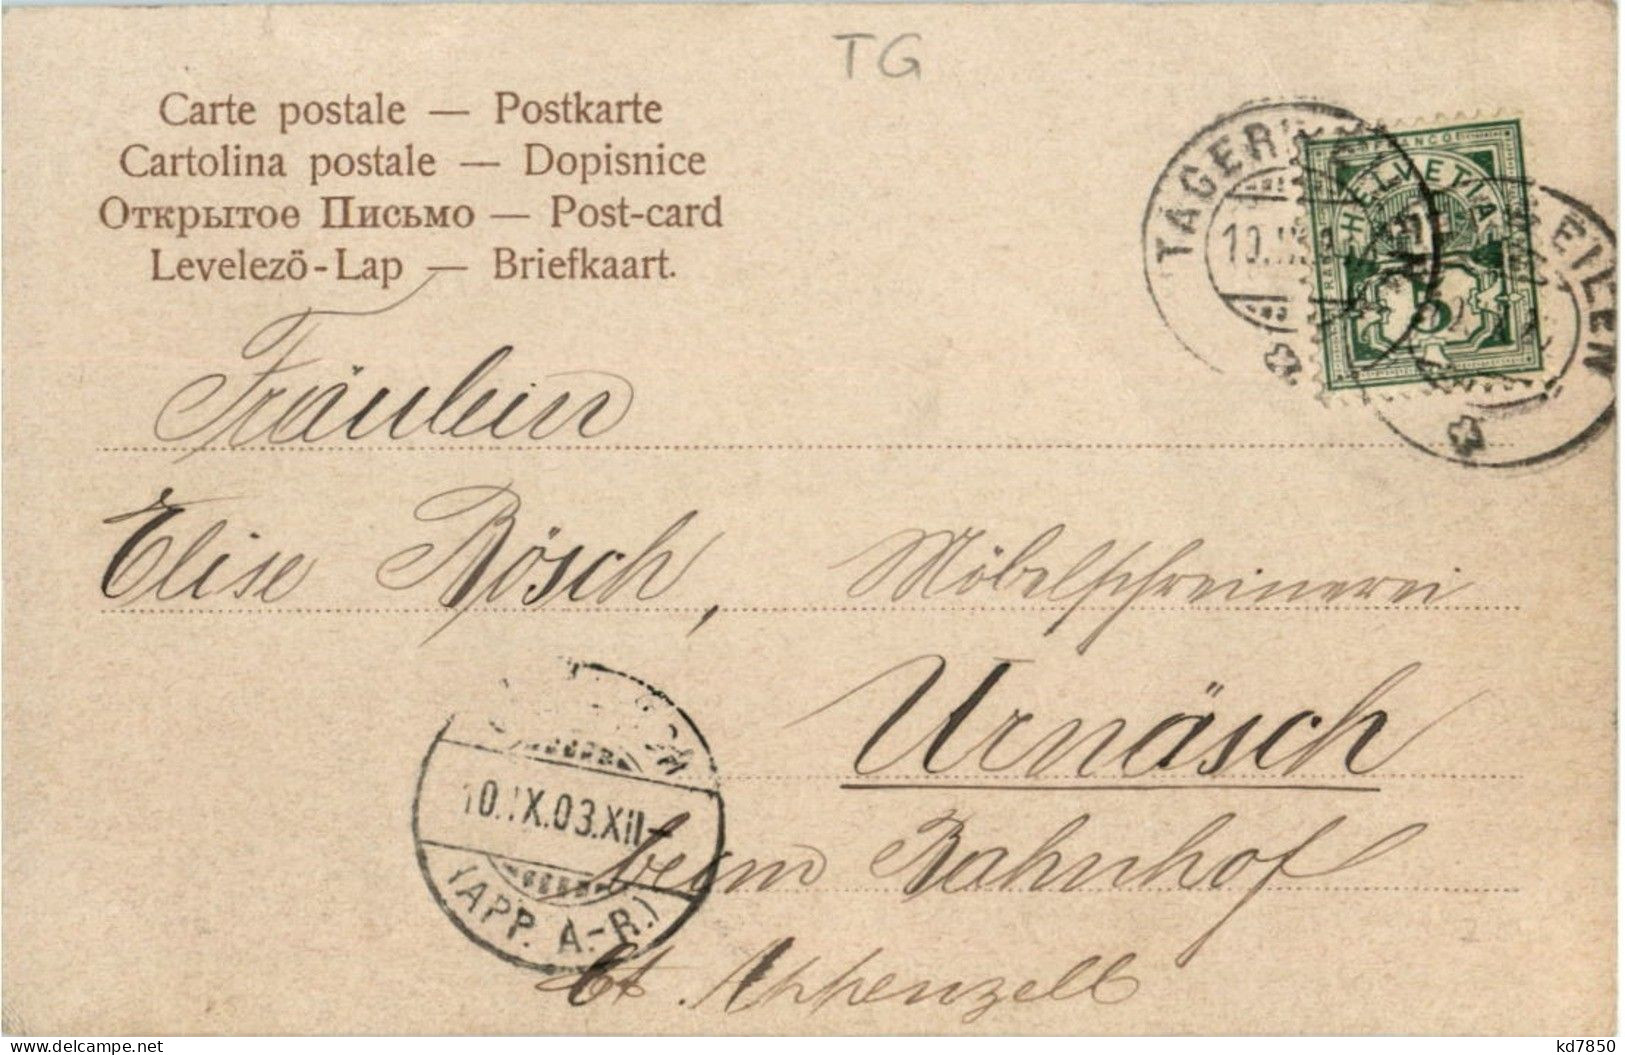 TG
Carte postale — Postkarte
Cartolina postale — Dopisnice
Открытое Письмо — Post-card
Levelező-Lap — Briefkaart.
FRANCO
HELVETIA
5
TÄGERWEILEN
Fräulein
Elise Rösch, Möbelschreinerei
Urnäsch
beim Bahnhof
Ct. Appenzell
10.IX.03.XII—
(APP. A.-R.)
delcampe.net
kd7850